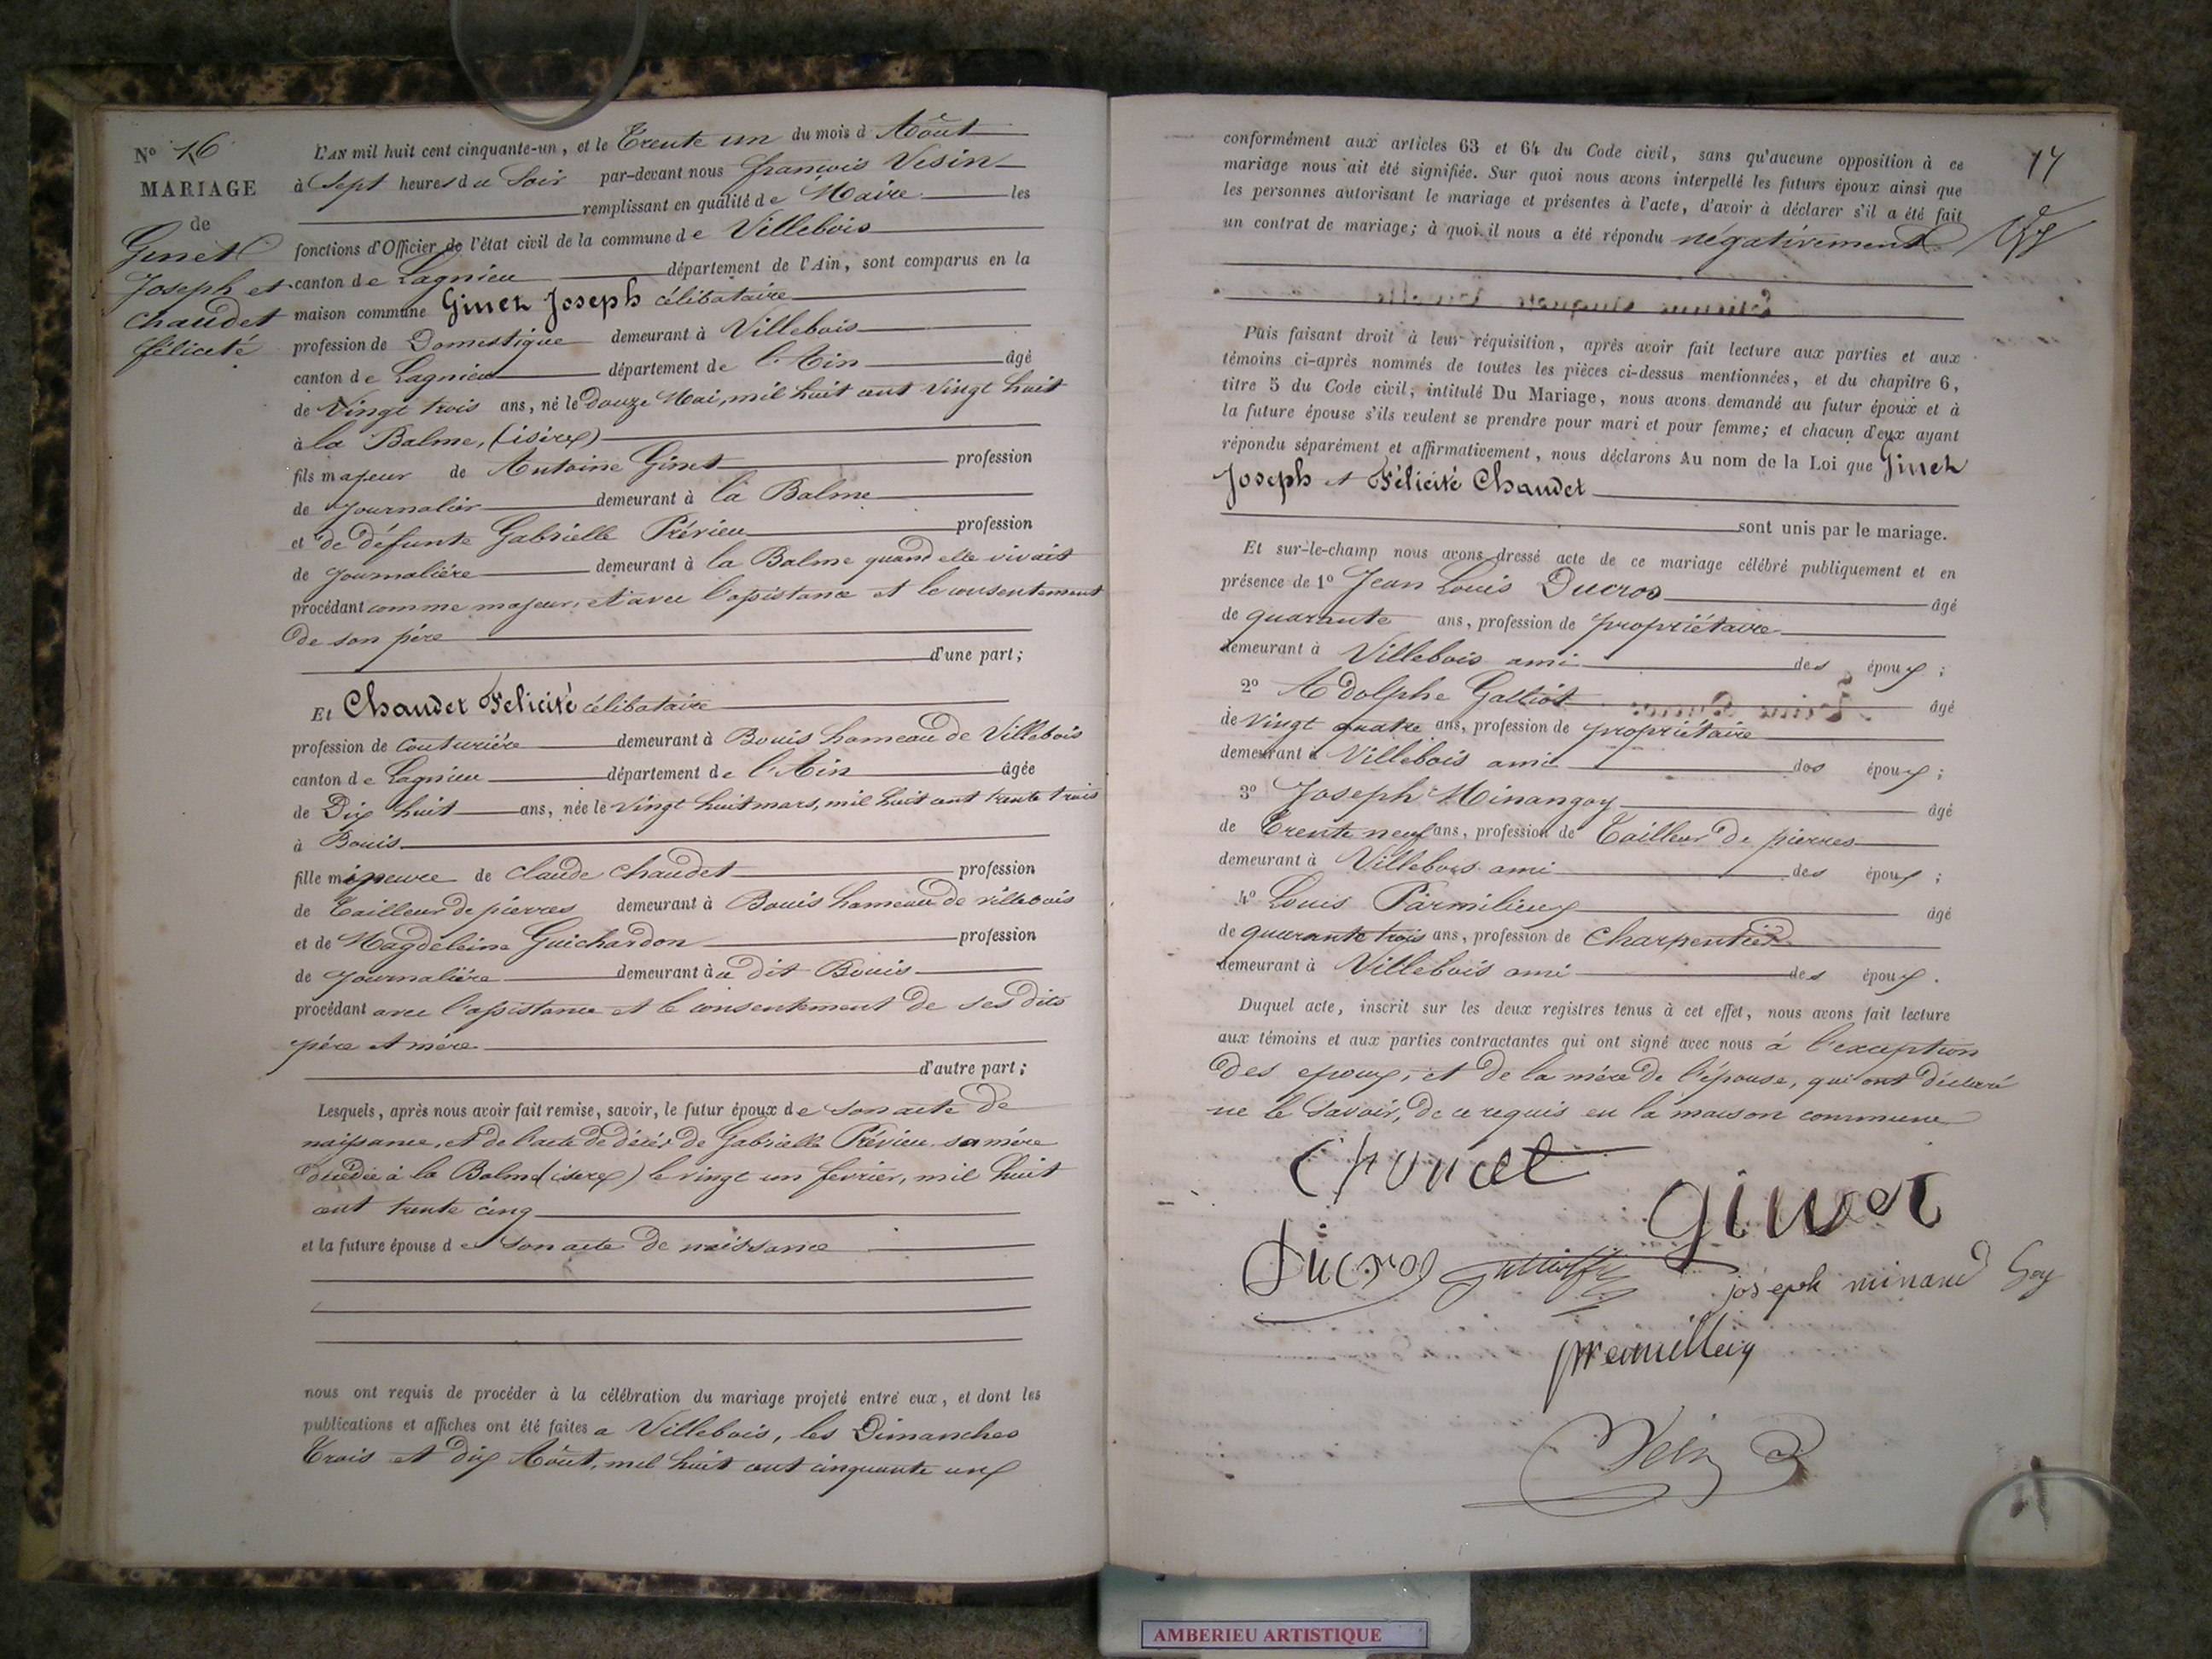 No 16
MARIAGE
de
Ginet
Joseph et
Chaudet
féliceté
L'AN mil huit cent cinquante-un, et le Trente un du mois d Août
à Sept heures du Soir par-devant nous françois Vesin
remplissant en qualité de Maire les
fonctions d'Officier de l'état civil de la commune de Villebois
canton de Lagnieu département de l'Ain, sont comparus en la
maison commune Ginet Joseph célibataire
profession de Domestique demeurant à Villebois
canton de Lagnieu département de l'Ain âgé
de Vingt trois ans, né le douze Mai, mil huit cent vingt huit
à la Balme, (isère)
fils majeur de Antoine Ginet profession
de journalier demeurant à la Balme
et de défunte Gabrielle Prévieu profession
de journalière demeurant à la Balme quand elle vivait
procédant comme majeur, et avec l'assistance et le consentement
de son père
d'une part;
Et Chaudet Félicité célibataire
profession de couturière demeurant à Bouis hameau de Villebois
canton de Lagnieu département de l'Ain âgée
de Dix huit ans, née le vingt huit mars, mil huit cent trente trois
à Bouis
fille mineure de Claude Chaudet profession
de Tailleur de pierres demeurant à Bouis hameau de villebois
et de Magdeleine Guichardon profession
de journalière demeurant à u dit Bouis
procédant avec l'assistance et le consentement de ses dits
père et mère
d'autre part;
Lesquels, après nous avoir fait remise, savoir, le futur époux de son acte de
naissance, et de l'acte de décès de Gabrielle Prévieu sa mère
décédée à la Balme (isère) le vingt un fevrier, mil huit
cent trente cinq
et la future épouse de son acte de naissance
nous ont requis de procéder à la célébration du mariage projeté entre eux, et dont les
publications et affiches ont été faites a Villebois, les Dimanches
Trois et dix Août, mil huit cent cinquante un
17
conformément aux articles 63 et 64 du Code civil, sans qu'aucune opposition à ce
mariage nous ait été signifiée. Sur quoi nous avons interpellé les futurs époux ainsi que
les personnes autorisant le mariage et présentes à l'acte, d'avoir à déclarer s'il a été fait
un contrat de mariage; à quoi il nous a été répondu négativement
Puis faisant droit à leur réquisition, après avoir fait lecture aux parties et aux
témoins ci-après nommés de toutes les pièces ci-dessus mentionnées, et du chapitre 6,
titre 5 du Code civil, intitulé Du Mariage, nous avons demandé au futur époux et à
la future épouse s'ils veulent se prendre pour mari et pour femme; et chacun d'eux ayant
répondu séparément et affirmativement, nous déclarons Au nom de la Loi que Ginet
Joseph et Félicité Chaudet
sont unis par le mariage.
Et sur-le-champ nous avons dressé acte de ce mariage célébré publiquement et en
présence de 1o Jean Louis Ducros âgé
de quarante ans, profession de propriétaire
demeurant à Villebois ami des époux;
2o Adolphe Galliot âgé
de vingt quatre ans, profession de propriétaire
demeurant à Villebois ami des époux;
3o Joseph Minangoy âgé
de Trente neuf ans, profession de Tailleur de pierres
demeurant à Villebois ami des époux;
4o Louis Parmilieux âgé
de quarante trois ans, profession de Charpentier
demeurant à Villebois ami des époux.
Duquel acte, inscrit sur les deux registres tenus à cet effet, nous avons fait lecture
aux témoins et aux parties contractantes qui ont signé avec nous à l'exception
des époux, et de la mère de l'épouse, qui ont déclaré
ne le savoir, de ce requis en la maison commune
ginet
Ducros
joseph minand Goy
AMBERIEU ARTISTIQUE